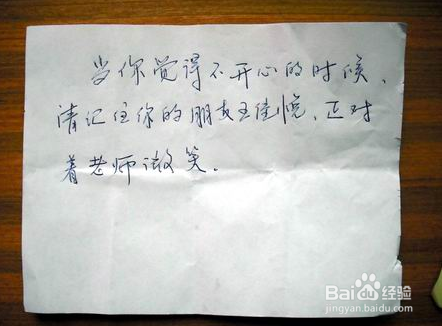 当你觉得不开心的时候、
请记住你的朋友王佳悦、正对
着老师微笑.
Baidu经验
jingyan.baidu.com